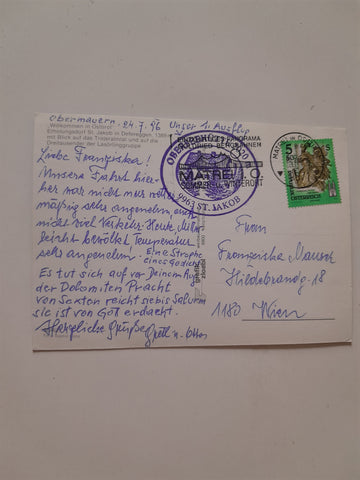 Obermauern, 24.7.96 Unser 1. Ausflug
Willkommen in Osttirol
Erholungsdorf St. Jakob in Defereggen, 1389 m
mit Blick auf das Trojeralmtal und auf die
Dreitausender der Lasörlinggruppe
Liebe Franziska!
Unsere Fahrt hie-
her war nicht nur
mäßig sehr angenehm auch
nicht viel Verkehr. Heute
leicht bewölkt Temperatur
sehr angenehm. Eine Strophe
eines Gedichts
Es tut sich auf vor Deinem Auge
der Dolomiten Pracht
von Sexten reicht sie bis
sie ist von Gott erdacht.
Herzliche Grüße Gretl u. Otto
PANORAMA
MATREI I. O.
SOMMER U. WINTERORT
9963 ST. JAKOB
MATREI IN OSTTIROL
5 S
REPUBLIK
ÖSTERREICH
Frau
Franziska Mauser
Hildebrandg. 18
1180 Wien